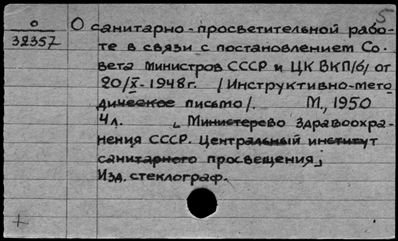 5
О
32357
О санитарно-просветительной рабо-
те в связи с постановлением Со-
вета Министров СССР и ЦК ВКП/б/ от
20/X-1948г. /Инструктивно-мето-
дическое письмо/. М., 1950
4л. [Министерево Здравоохра-
нения СССР. Центральный институт
санитарного просвещения]
Изд. стеклограф.
+